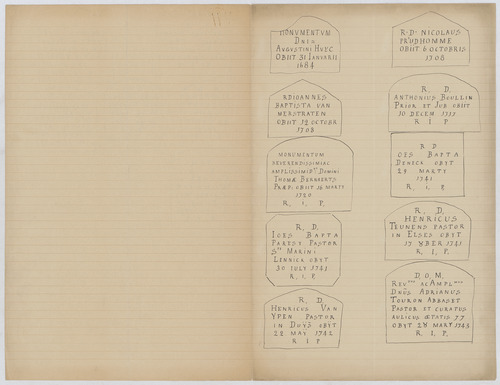 MONUMENTUM
DNIS
AUGUSTINI HUEC
OBIIT 31 IANUARII
1684
RDIOANNES
BAPTISTA VAN
MERSTRATEN
OBIIT 12 OCTOBR
1708
MONUMENTUM
REVERENDISSIMI AC
AMPLISSIMI DNI DOMINI
THOMÆ BERNAERTS
PRÆP. OBIIT 16 MARTY
1720
R. I. P.
R. D.
IOES BAPTA
PASTOR
Sti MARINI
LENNICK OBYT
30 IULY 1741
R. I. P.
R. D.
HENRICUS VAN
YPEN PASTOR
IN DUYS OBYT
22 MAY 1742
R I P
R. D. NICOLAUS
PRUDHOMME
OBIIT 6 OCTOBRIS
1708
R. D.
ANTHONIUS BOULLIN
PRIOR ET JUB OBIIT
10 DECEM
R I P
R D
IOES BAPTA
DENICK OBYT
28 MARTY
1741
R. I. P.
R. D.
HENRICUS
TEUNENS PASTOR
IN ELSES OBYT
17 XBER 1741
R. I. P.
D. O. M.
REVmus AC AMPLmus
DNUS ADRIANUS
TOURON ABBASET
PASTOR ET CURATES
AULICUS ÆTATIS 77
OBYT 28 MART 1743
R. I. P.